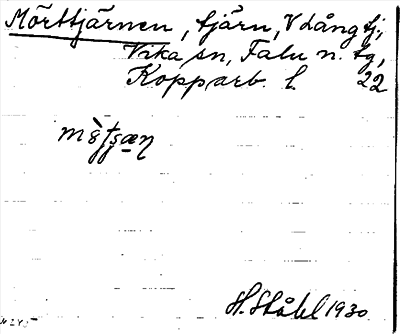 Mörttjärnen, tjärn, V Långtj.,
Vika sn, Falu n. tg,
Kopparb. l. 22
H. Ståhl 1930